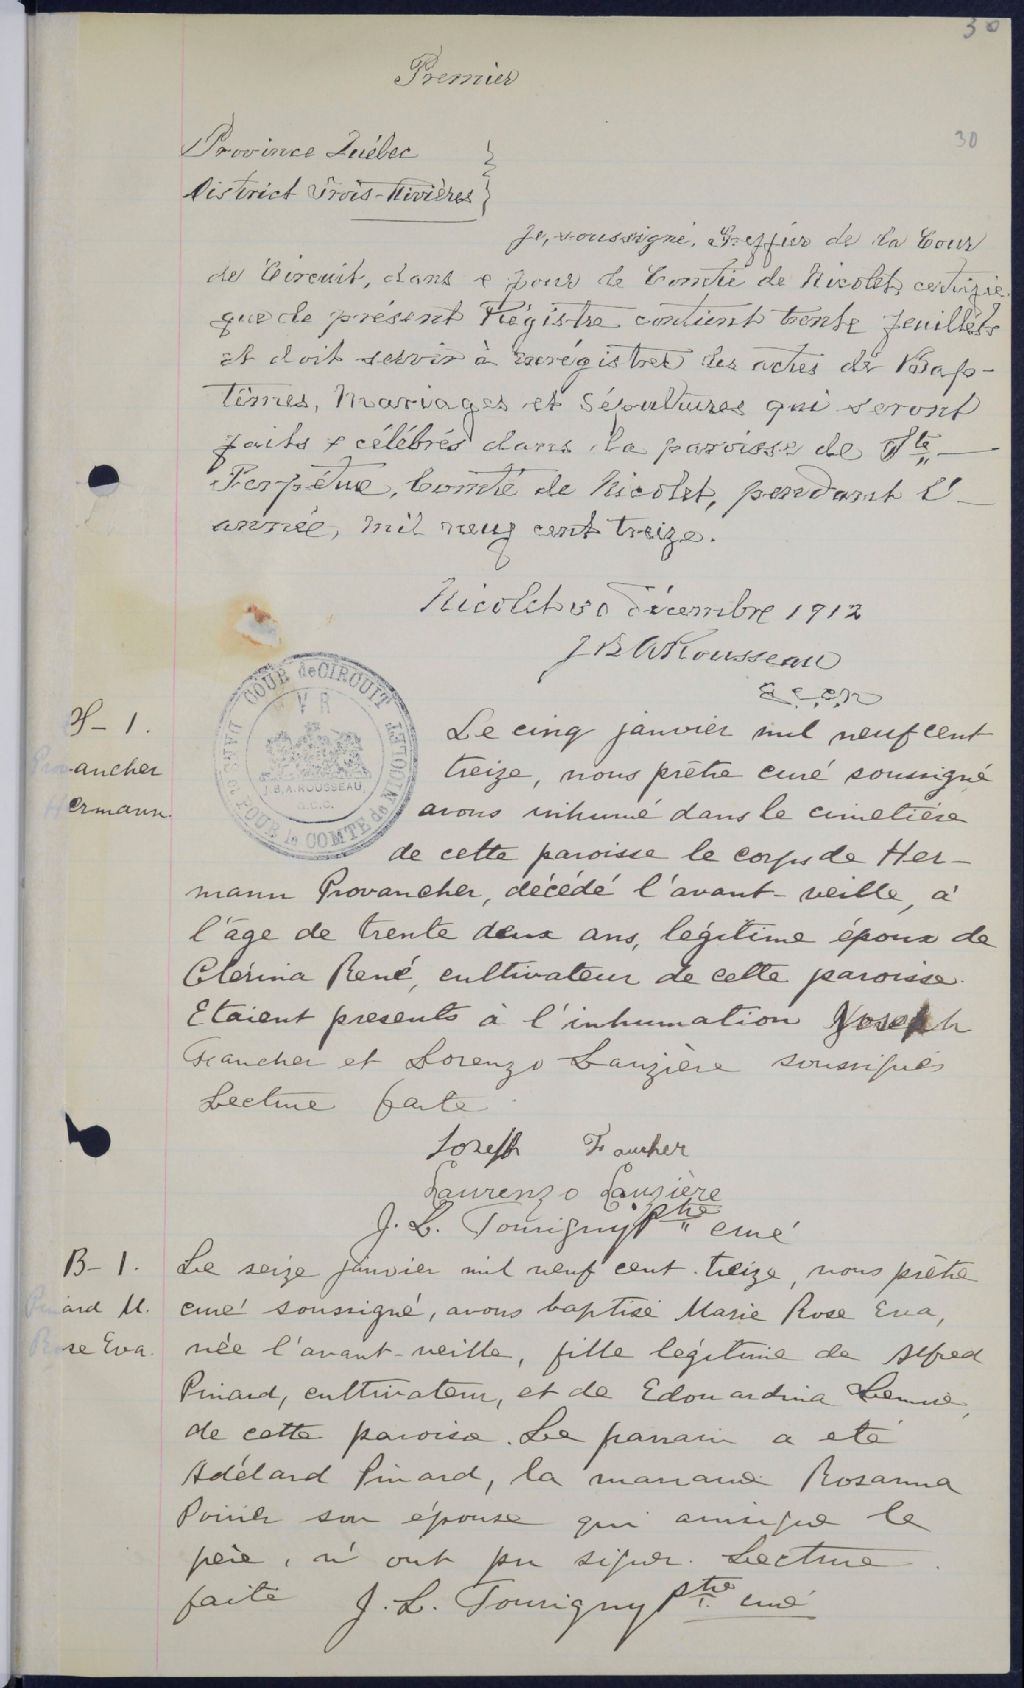 30
Premier
30
Province Québec
District Trois-Rivières
Je, soussigné, Greffier de la Cour
de Circuit, dans & pour le Comté de Nicolet, certifie
que le présent Régistre contient trente feuillets
et doit servir à enrégistrer les actes de Bap-
têmes, Mariages et Sépultures qui seront
faits & célébrés dans la paroisse de Ste
Perpétue, Comté de Nicolet, pendant l'
année, mil neuf cent treize.
Nicolet 30 décembre 1912
J B A Rousseau
G.C.C.N
COUR de CIRCUIT
DANS et POUR le COMTE de NICOLET
V R
J.B.A. ROUSSEAU
G.C.C.
S-1.
Provancher
Hermann
Le cinq janvier mil neuf cent
treize, nous prêtre curé soussigné
avons inhumé dans le cimetière
de cette paroisse le corps de Her-
mann Provancher, décédé l'avant-veille, à
l'âge de trente deux ans, légitime époux de
Clérina René, cultivateur de cette paroisse.
Etaient presents à l'inhumation Joseph
Faucher et Lorenzo Lauzière soussignés
Lecture faite
Joseph Faucher
Laurenzo Lauzière
J. L. Tourigny Ptre curé
B-1.
Pinard M.
Rose Eva.
Le seize janvier mil neuf cent treize, nous prêtre
curé soussigné, avons baptisé Marie Rose Eva,
née l'avant-veille, fille légitime de Alfred
Pinard, cultivateur, et de Edouardina
de cette paroisse. Le parrain a eté
Adélard Pinard, la marraine Rosanna
Poirier son épouse qui ainsi que le
père, n'ont pu signer. Lecture
faite J. L. Tourigny Ptre curé